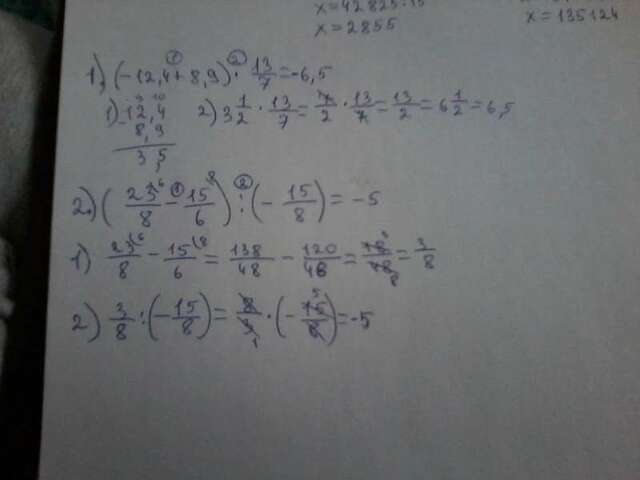 x=42825:15
x=2855
x=135124
1.) (-12,4+8,9)① · ② 13/7=-6,5
1) -12,4
8,9
3,5
2) 3 1/2 · 13/7 = 7/2 · 13/7 = 13/2 = 6 1/2 = 6,5
2.) ( 23/8 ① - 15/6 ) ② : (- 15/8) = -5
1) 23/8 - 15/6 = 138/48 - 120/48 = 18/48 = 3/8
2) 3/8 : (- 15/8) = 8/3 · (- 15/8) = -5